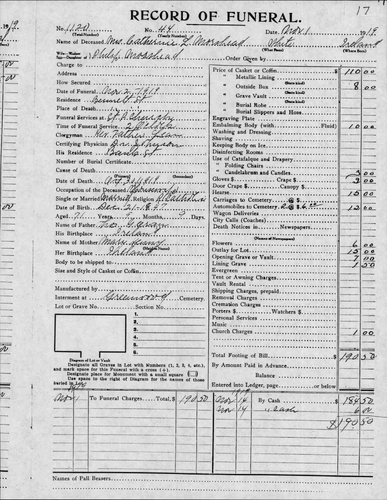 17
RECORD OF FUNERAL.
No. 1120 No. 44 Date Nov. 1 1919
(Total Number) (Yearly Number)
Name of Deceased Mrs. Catherine Morshead White Ireland
Wife Widow of Philip Morshead
Charge to
Address
Order Given by
How Secured
Date of Funeral Nov 2, 1919
Residence Bennett St
Place of Death
Funeral Services at
Time of Service 2
Clergyman Rev. Father
Certifying Physician Johnson
His Residence Bank St
Number of Burial Certificate
Cause of Death
Date of Death Oct 31 1919
Occupation of the Deceased Housework
Religion
Date of Birth Dec. 21-
Aged 71 Years Months Days
Name of Father
His Birthplace Ireland
Name of Mother Mary
Her Birthplace Ireland
Body to be shipped to
Size and Style of Casket or Coffin
Manufactured by
Interment at Greenwood Cemetery.
Lot or Grave No. Section No.
1
2
3
4
5
6
Diagram of Lot or Vault
Designate all Graves in Lot with Numbers (1, 2, 3, 4, etc.), and mark space for this Funeral with a cross (+)
Designate place for Monument with a small square
Use space to right of Diagram for the names of those buried in Lot.
Price of Casket or Coffin $ 110 00
Metallic Lining
Outside Box 8 00
Grave Vault
Burial Robe
Burial Slippers and Hose
Engraving Plate
Embalming Body (with Fluid) 10 00
Washing and Dressing
Shaving
Keeping Body on Ice
Disinfecting Rooms
Use of Catafalque and Drapery
Folding Chairs
Candelabrum and Candles 3 00
Gloves $ 3 00 3 00
Door Crape $ Candles $
Hearse 15 00
Carriages to Cemetery @ $
Automobiles to Cemetery 2 @ $ 6.00 12 00
Wagon Deliveries
City Calls (Coaches)
Death Notices in
(Names of Newspapers)
Flowers 6 00
Outlay for Lot 15 00
Opening Grave or Vault 7 00
Lining Grave 1 50
Evergreen
Tent or Awning Charges
Vault Rental
Shipping Charges, prepaid
Removal Charges
Cremation Charges
Porters $ Watchers $
Personal Services
Music
Church Charges 1 00
Total Footing of Bill $ 190 50
By Amount Paid in Advance
Balance
Entered into Ledger, page or below.
Nov 1 To Funeral Charges Total, $ 190 50
Nov 14 By Cash 184 50
Nov 14 " Cash 6 00
$190 50
Names of Pall Bearers